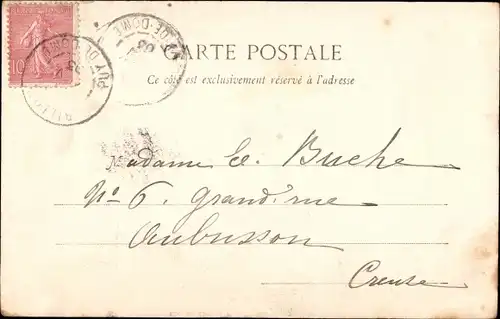 CARTE POSTALE
Ce côté est exclusivement réservé à l'adresse
PUY-DE-DOME
PUY-DE-DOME
10
Madame E. Buche
No 6. Grand'rue
Aubusson
Creuse